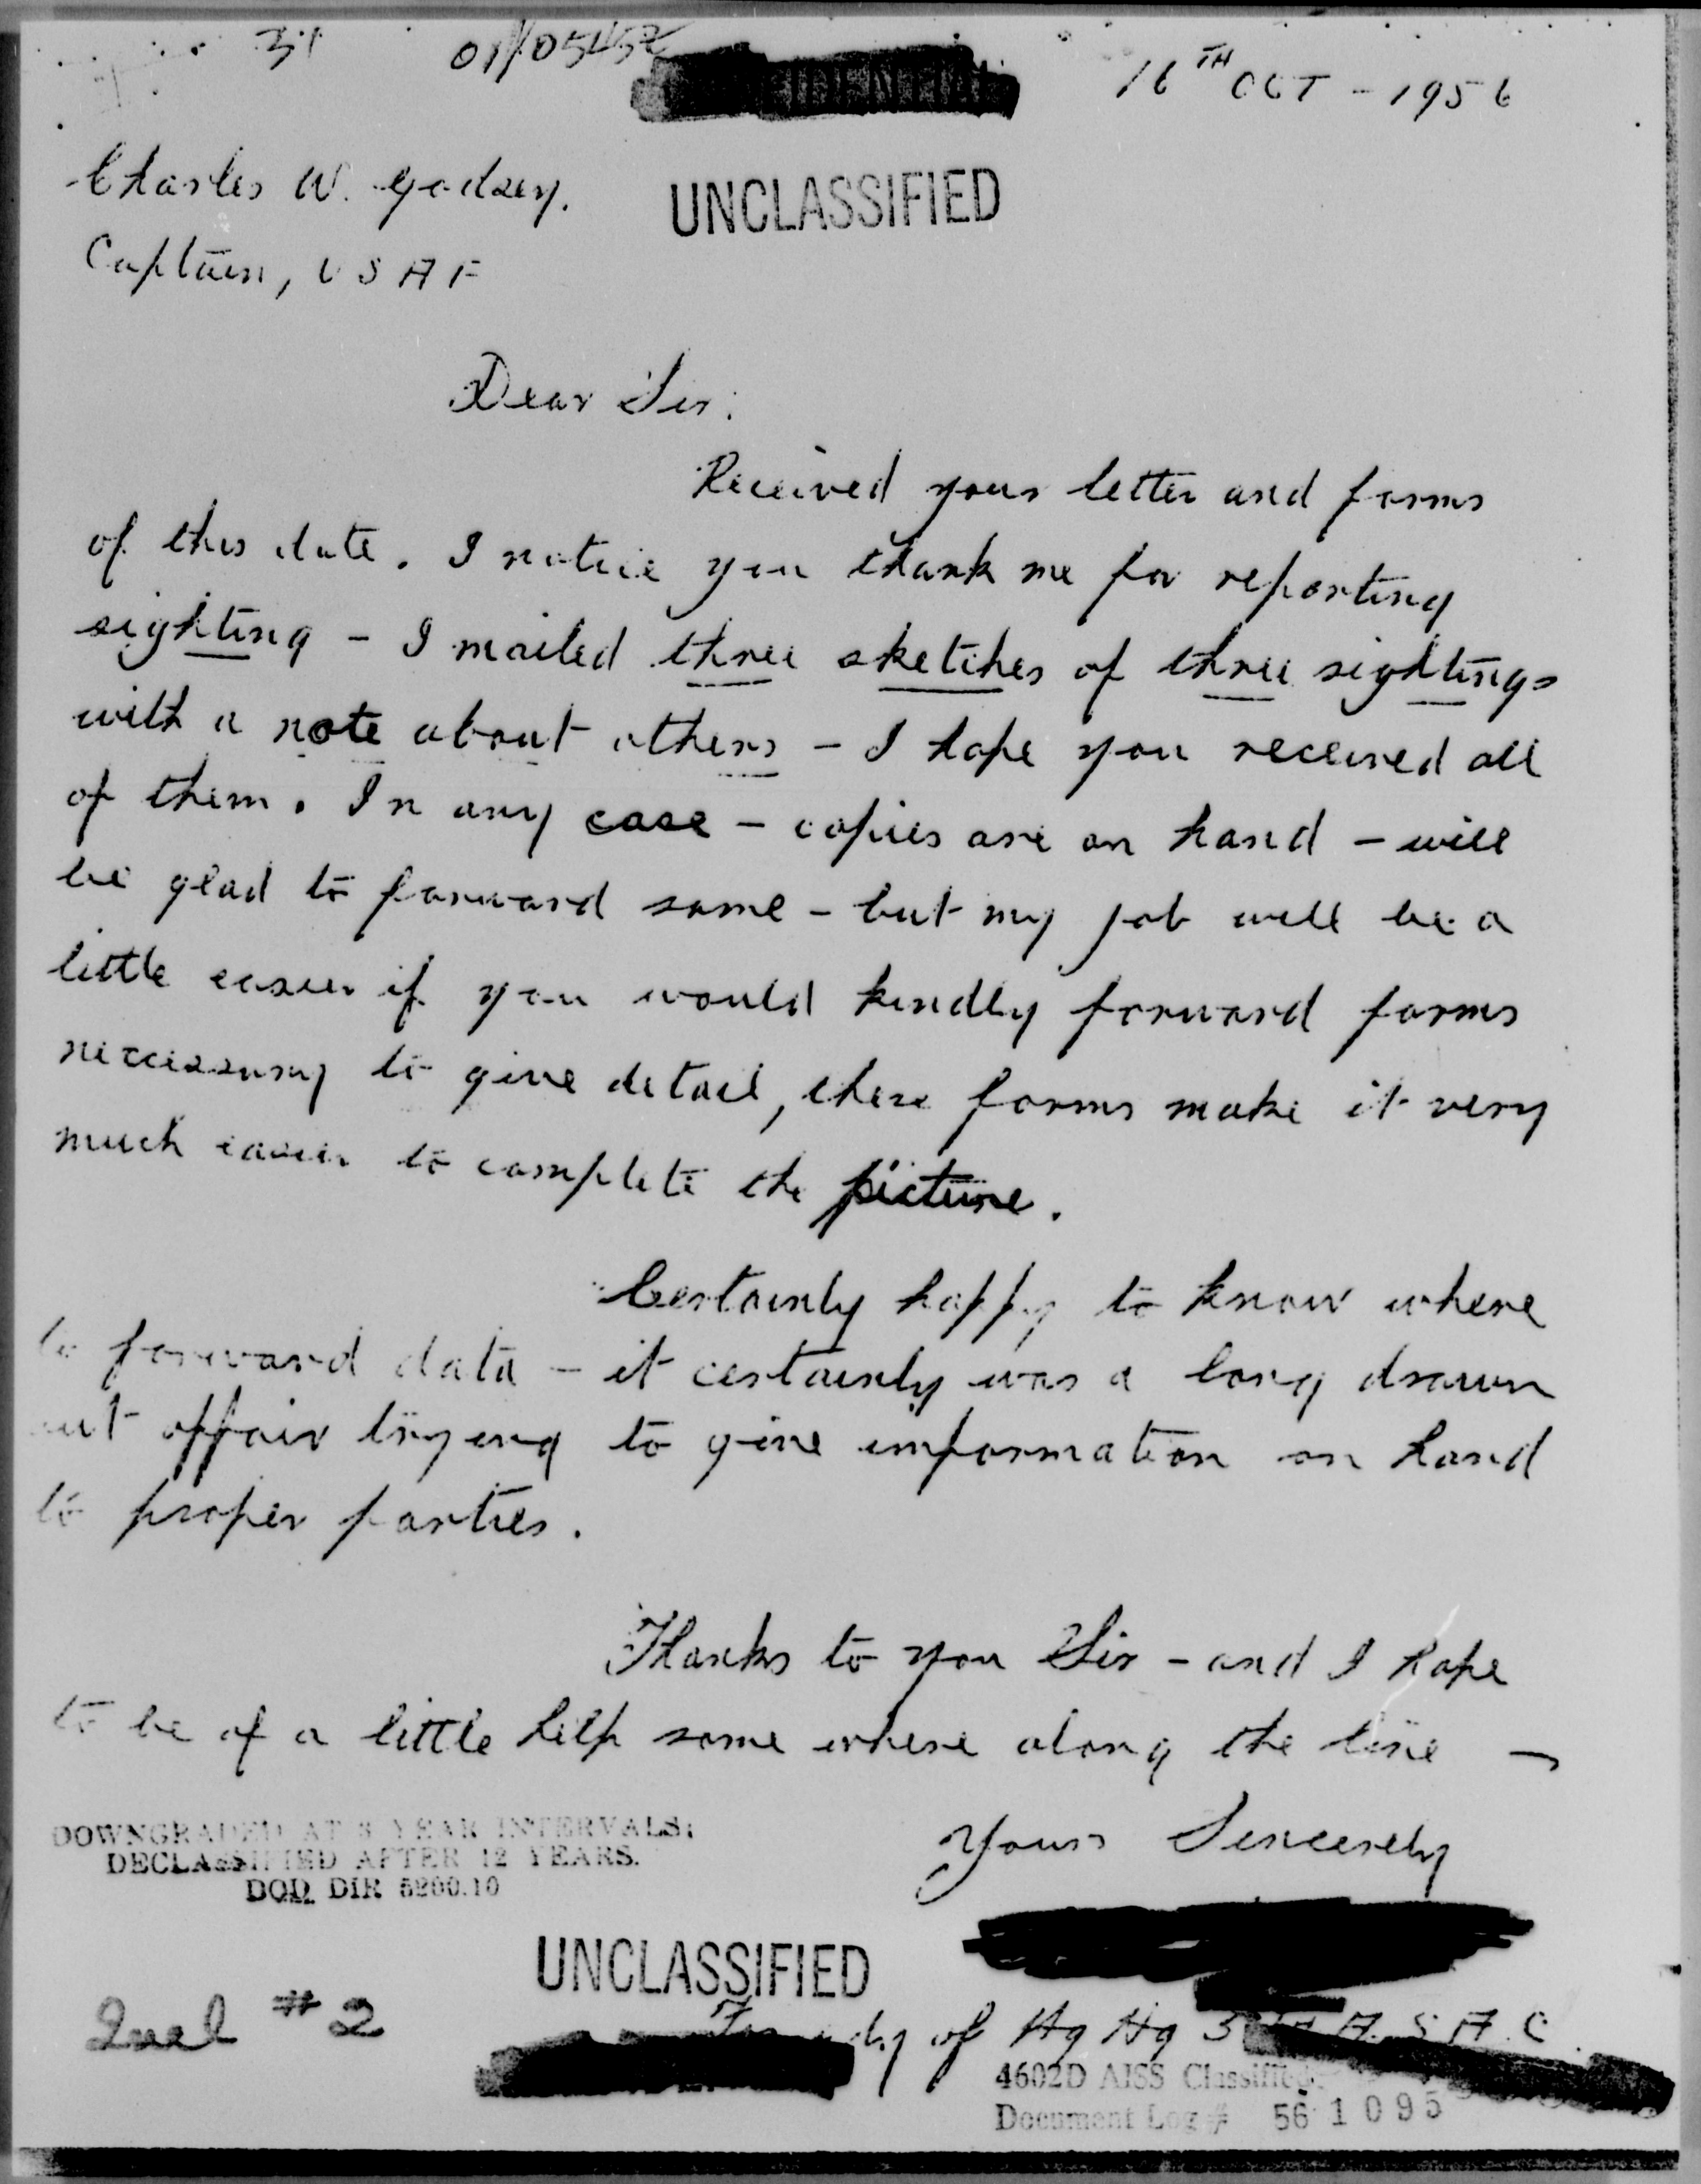 31
16TH OCT - 1956
Charles W. Godsey.
UNCLASSIFIED
Captain, USAF
Dear Sir:
Received your letter and forms
of this date. I notice you thank me for reporting
sighting - I mailed three sketches of three sightings
with a note about others - I hope you received all
of them. In any case - copies are on hand - will
be glad to forward same - but my job will be a
little easier if you would kindly forward forms
neccessary to give detail, these forms make it very
much easier to complete the picture.
Certainly happy to know where
to forward data - it certainly was a long drawn
out affair trying to give information on hand
to proper parties.
Thanks to you Sir - and I hope
to be of a little help some where along the line -
DOWNGRADED AT 3 YEAR INTERVALS;
DECLASSIFIED AFTER 12 YEARS.
DOD DIR 5200.10
Yours Sincerely
UNCLASSIFIED
Incl #2
of Hq Hq
4602D AISS Classified
Document Log # 56 1095